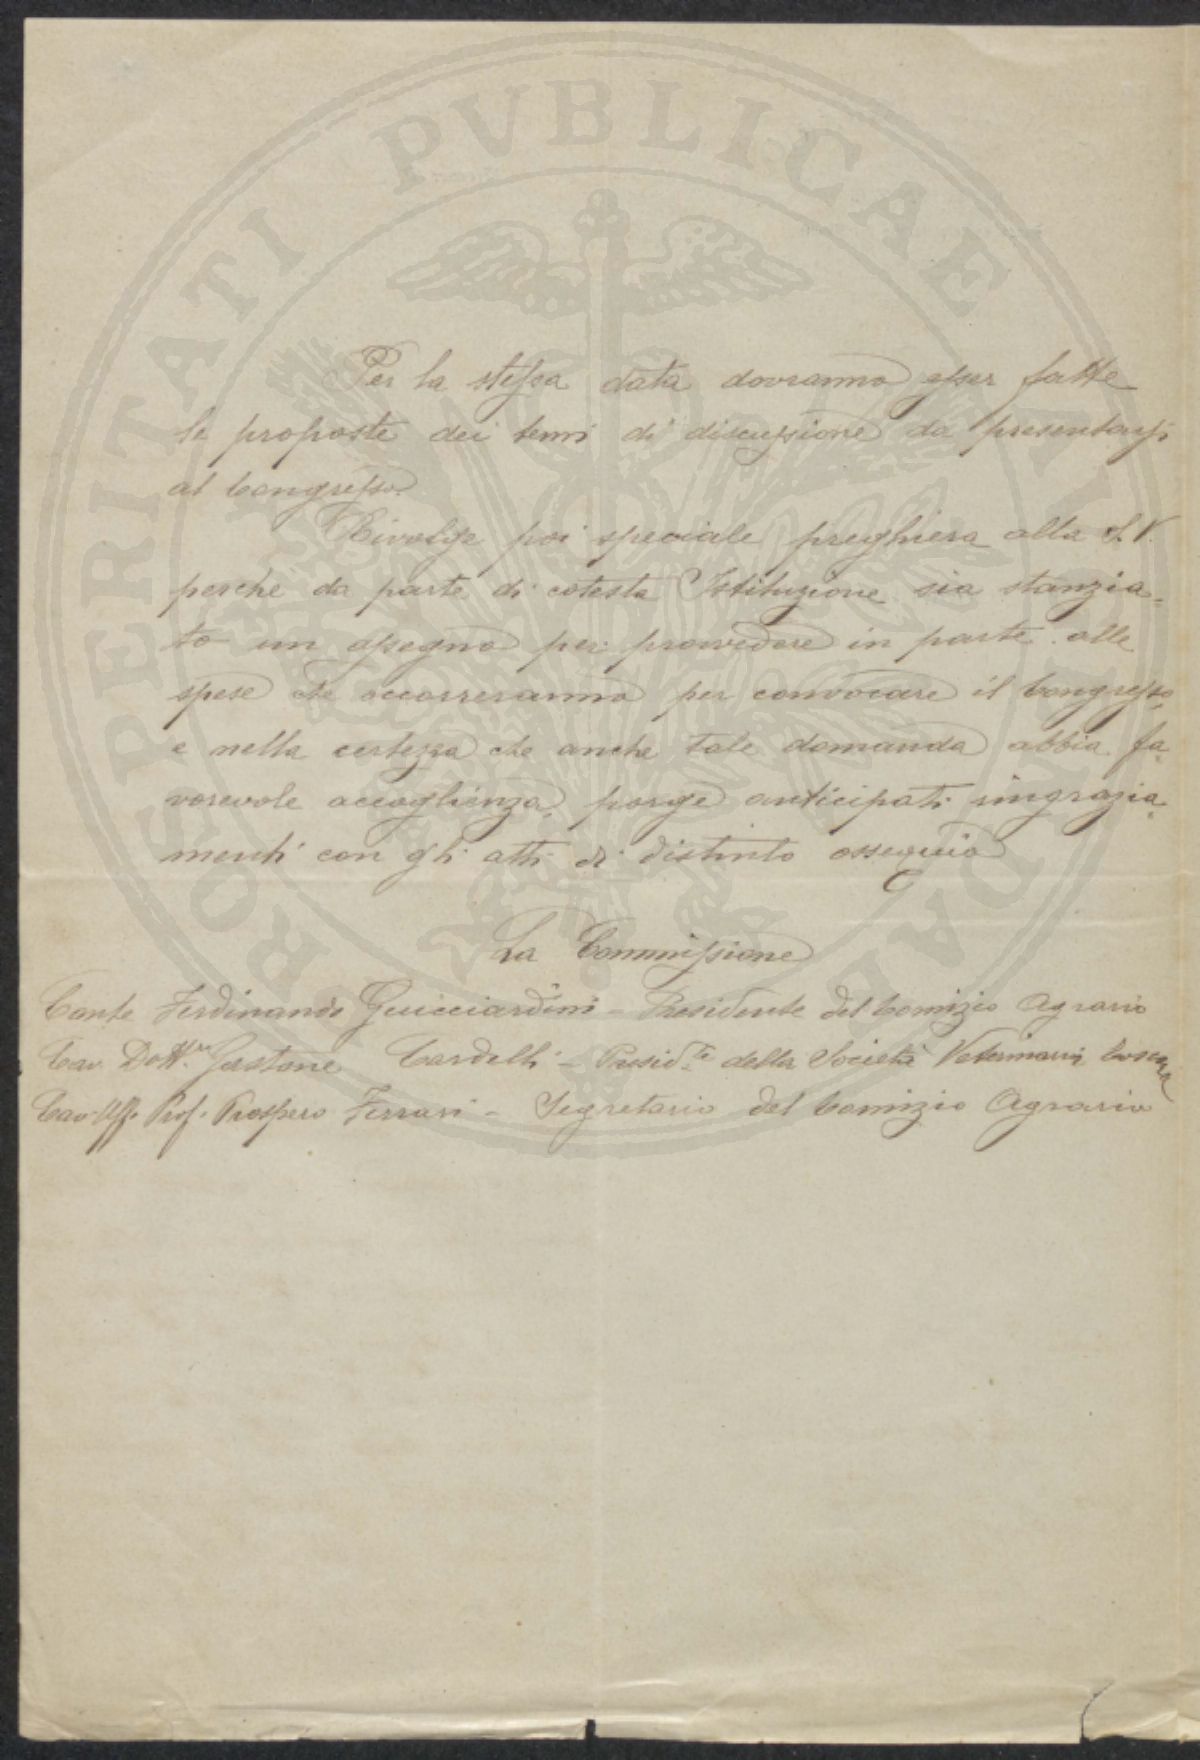 PROSPERITATI PVBLICAE
Per la stessa data dovranno esser fatte
le proposte dei temi di discussione da presentarsi
al Congresso.
Rivolge poi speciale preghiera alla S. V.
perchè da parte di cotesta Istituzione sia stanzia-
to un assegno per provvedere in parte alle
spese che occorreranno per convocare il Congresso,
e nella certezza che anche tale domanda abbia fa-
vorevole accoglienza, porge anticipati ringrazia-
menti con gli atti di distinto ossequio
La Commissione
Conte Ferdinando Guicciardini - Presidente del Comizio Agrario
Cav. Dott.re Gastone Cardelli - Presid.te della Società Veterinaria Toscana
Cav. Uff. Prof. Prospero Ferrari - Segretario del Comizio Agrario